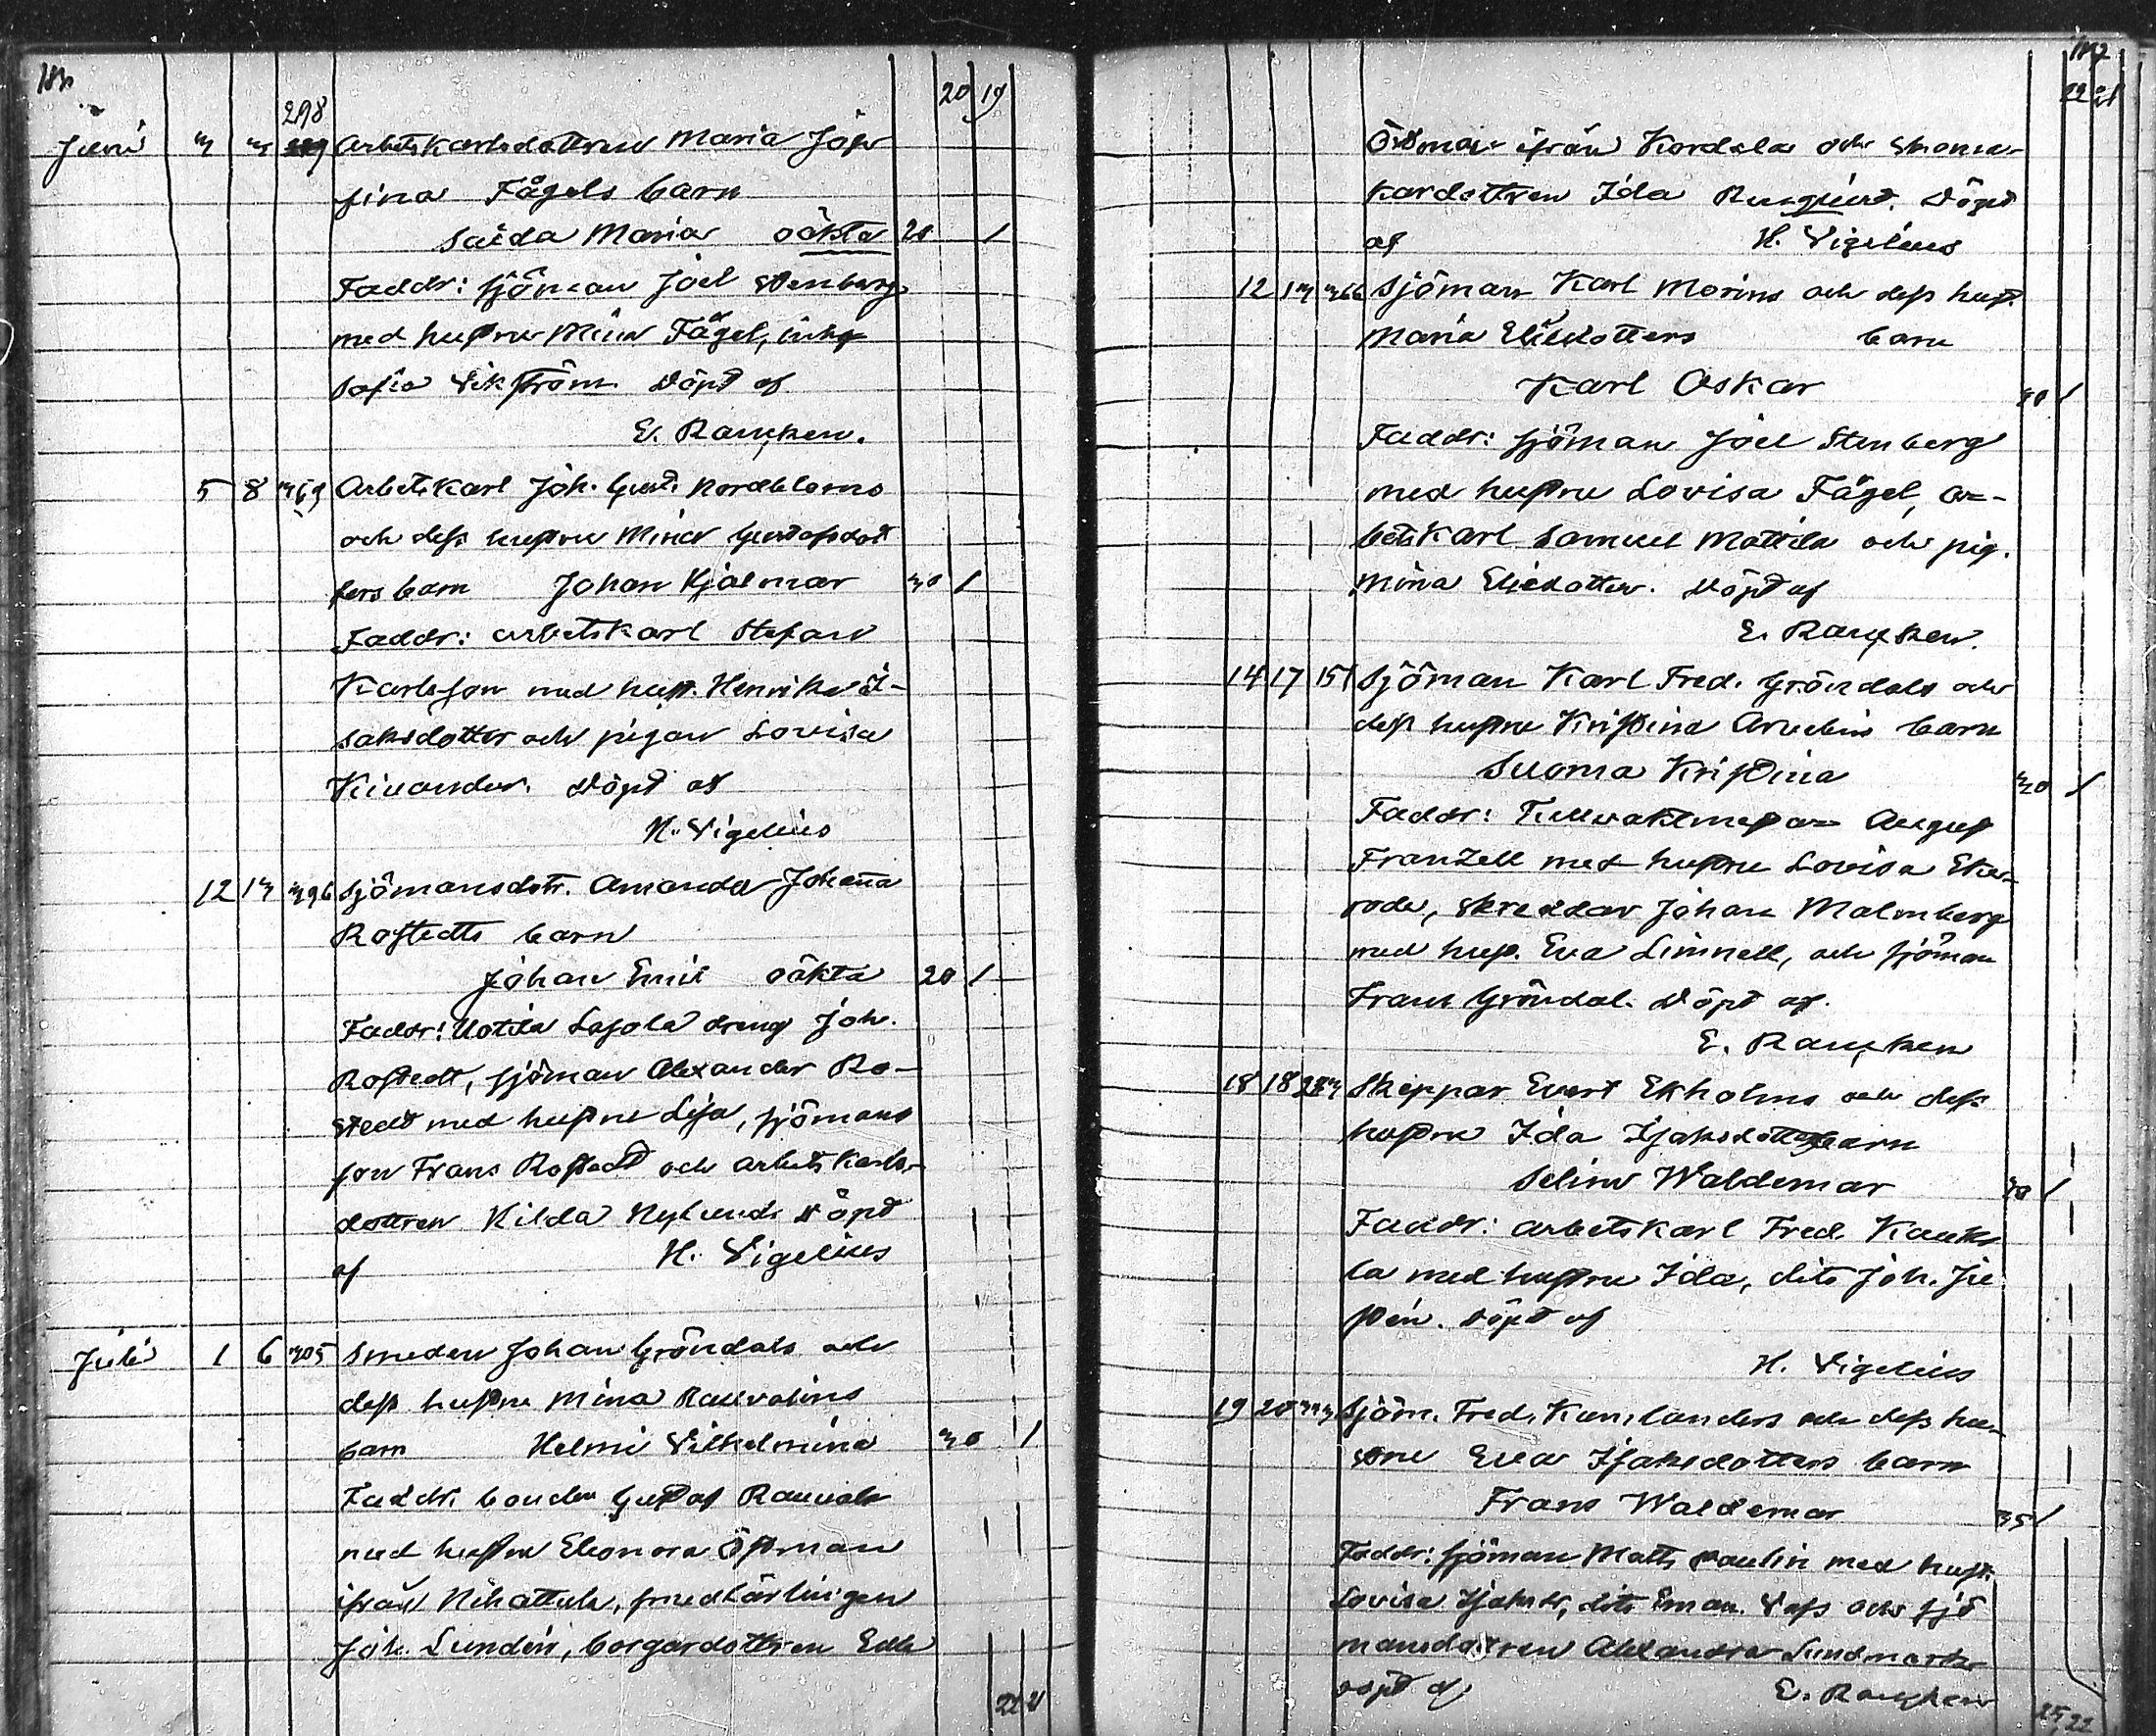 298
20 19
Juni 3 3 289 Arbetskarlsdottren Maria Jose
fina Fågels barn
Saida Maria oäkta 20 1
Faddr: sjöman Joel Stenberg
med hustru Mina Fågel, 
Sofia Vikström. Döpt af
E. Rancken.
5 8 369 Arbetskarl Joh. Gust. Nordbloms
och dess hustru Mina Gustafsdot
ters barn Johan Hjalmar 30 1
Faddr: arbetskarl Stefan
Karlsson med hust. Henrika 
saksdotter och pigan Lovisa
Kinander. Döpt af
H. Vigelius
12 13 396 Sjömansdotr. Amanda Johanna
Rostedts barn
Johan Emil oäkta 20 1
Faddr: Uotila Lassola dreng Joh.
Rostedt, sjöman Alexander Ro-
stedt med hustru Lisa, sjömans
son Frans Rostedt och arbetskarls-
dottren Hilda Nylund. Döpt
af H. Vigelius
Juli 1 6 305 Smeden Johan Gröndals och
dess hustru Mina Rauvalins
barn Helmi Vilhelmina 30 1
Faddr. bonden Gustaf Rauvala
med hustru Eleonora Östman
ifrån Nihattula, smedlärlingen
Joh. Lundén, borgardottren Edla
22 21
22 21
Östman ifrån Kordela och skoma-
kardottren Ida Rungqvist. Döpt
af H. Vigelius
12 13 366 Sjöman Karl Morins och dess hust.
Maria Eliedotters barn
Karl Oskar 30 1
Faddr: sjöman Joel Stenberg
med hustru Lovisa Fågel, ar-
betskarl Samuel Mattila och pig.
Mina Eliedotter. Döpt af
E. Rancken.
14 17 151 Sjöman Karl Fred. Gröndals och
dess hustru Kristina Arvelins barn
Suoma Kristina 30 1
Faddr: Tullvaktmästar August
Franzell med hustru Lovisa Eke-
rode, skreddar Johan Malmberg
med hust. Eva Limnell, och sjöman
Frans Gröndal. Döpt af.
E. Rancken
18 18 Skeppar Evert Ekholms och dess
hustru Ida Isaksdotters barn
Selim Waldemar 30 1
Faddr: arbetskarl Fred. Kauko
la med hustru Ida, dito Joh. 
. Döpt af
H. Vigelius
19 20 Sjöm. Fred. Kumlanders och dess hu-
stru Eva Isaksdotters barn
Frans Waldemar 35 1
Faddr: sjöman Matts Paulin med hust.
Lovisa Isaksdr, dito Eman. Vass och sjö
mansdottren Alexandra Lundmark
döpt af E. Rancken